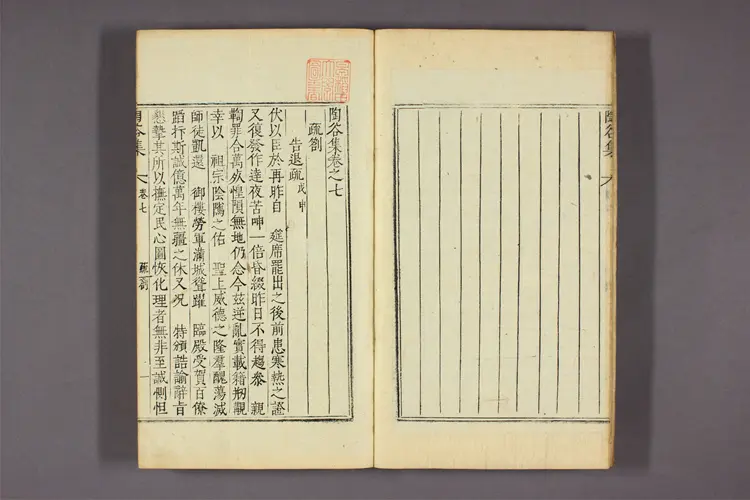 陶谷集卷之七
疏劄
告退疏 戊申
伏以臣於再昨自 筵席罷出之後前患寒熱之證
又復發作達夜苦呻一倍昏綴昨日不得趨參 親
鞫罪合萬殞惶隕無地仍念今玆逆亂實載籍刱覯
幸以 祖宗陰隲之佑 聖上威德之隆羣醜蕩滅
師徒凱還 御樓勞軍滿城聳躍 臨殿受賀百僚
蹈抃斯誠億萬年無疆之休又況 特頒誥諭辭旨
懇摯其所以撫定民心圖恢化理者無非至誠惻怛
陶谷集 卷七 疏劄 一
陶谷集